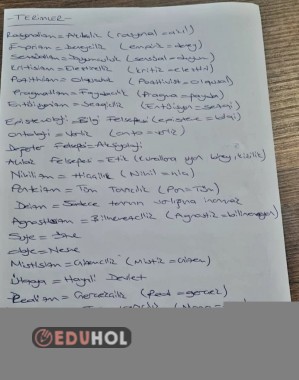 - TERİMLER -
Rasyonalizm = Akılcılık (rasyonal = akıl)
Empirizm = Deneycilik (empeiri = deney)
Sensualizm = Duyumculuk (sensual = duyum)
Kritisizm = Eleştiricilik (kritik = eleştiri)
Pozitivizm = Olguculuk (Pozitivist = olgusal)
Pragmatizm = Faydacılık (Pragma = fayda)
Entüisyonizm = Sezgicilik (Entüisyon = sezgi)
Epistemoloji = Bilgi Felsefesi (episteme = bilgi)
ontoloji = Varlık (onto = varlık)
Değerler Felsefesi = Aksiyoloji
Ahlak Felsefesi = Etik
Nihilizm = Hiççilik (Nihil = hiç)
Panteizm = Tüm Tanrıcılık (Pan = Tüm)
Deizm = Sadece tanrının varlığına inanmak
Agnostisizm = Bilinemezcilik
Suje = Özne
obje = Nesne
Mistisizm = Gizemcilik (Mistik = Gizem)
Ütopya = Hayali Devlet
Realizm = Gerçekçilik (Real = gerçek)
EDUHOL